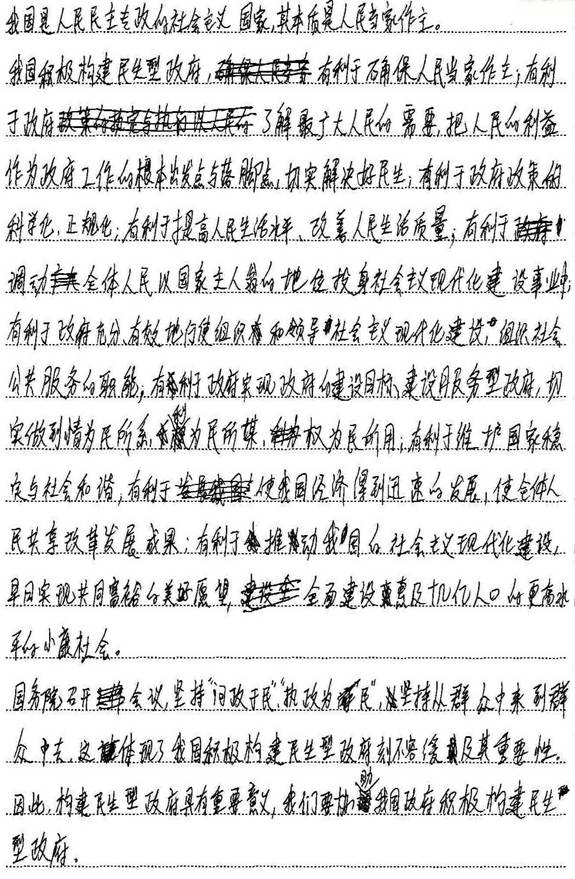 我国是人民民主专政的社会主义国家,其本质是人民当家作主。
我国积极构建民生型政府,有利于确保人民当家作主;有利
于政府了解最广大人民的需要,把人民的利益
作为政府工作的根本出发点与落脚点,切实解决好民生;有利于政府政策的
科学化、正规化;有利于提高人民生活水平、改善人民生活质量;有利于
调动全体人民以国家主人翁的地位投身社会主义现代化建设事业中;
有利于政府充分、有效地行使组织和领导社会主义现代化建设,组织社会
公共服务的职能;有利于政府实现政府的建设目标,建设服务型政府,切
实做到情为民所系,利为民所谋,权为民所用;有利于维护国家稳
定与社会和谐,有利于使我国经济得到迅速的发展,使全体人
民共享改革发展成果;有利于推动我国的社会主义现代化建设,
早日实现共同富裕的美好愿望,全面建设惠及十几亿人口的更高水
平的小康社会。
国务院召开会议,坚持“问政于民”“执政为民”,坚持从群众中来到群
众中去,这体现了我国积极构建民生型政府刻不容缓及其重要性。
因此,构建民生型政府具有重要意义,我们要协助我国政府积极构建民生
型政府。